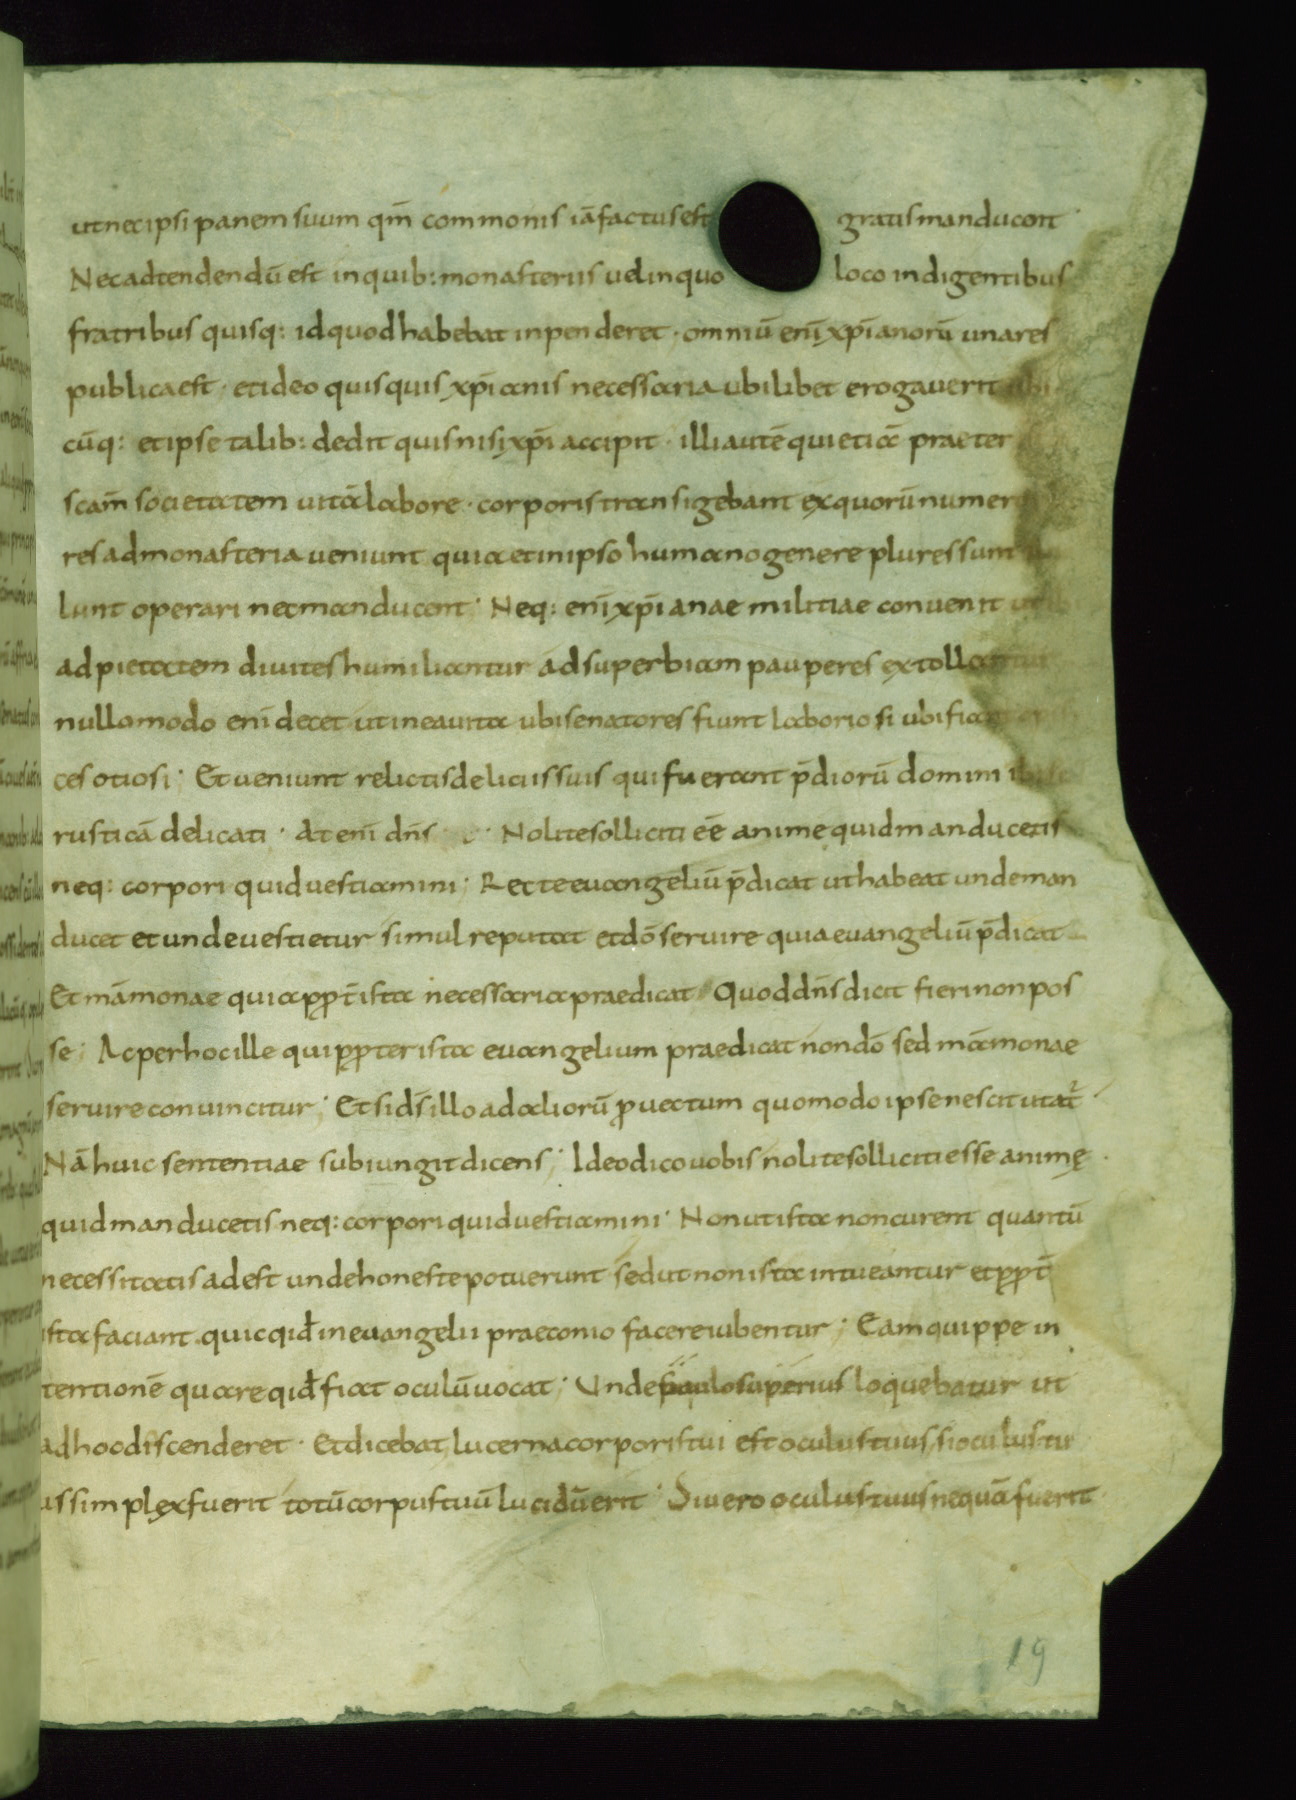 ut nec ipsi panem suum qm̄ commonis iā factus est gratis manducant
Nec adtendendū est in quib: monasteriis uel in quo loco indigentibus
fratribus quisq: id quod habebat inpenderet · omniū enī xp̄ianorū una res
publica est · et ideo quisquis xp̄ianis necessaria ubilibet erogauerit ubi
cūq: et ipse talib: dedit quis nisi xp̄i accipit · illi autē qui etiā praeter
scam̄ societatem uitā labore · corporis transigebant ex quorū numero
res ad monasteria ueniunt quia et in ipso humano genere plures sunt
lunt operari nec manducant · Neq: enī xp̄ianae militiae conuenit ut
ad pietatem diuites humiliantur ad superbiam pauperes extollantur
nullo modo enī decet ut in ea uita ubi senatores fiunt laboriosi ubi fiant
ces otiosi ; Et ueniunt relictis deliciis suis qui fuerant p̄diorū domini ibi
rusticā delicati · At enī dn̄s · Nolite solliciti eē anime quid manducetis
neq: corpori quid uestiamini ; Recte euangeliū p̄dicat ut habeat unde man
ducet et unde uestietur simul reputat et dō seruire quia euangeliū p̄dicat
Et māmonae quia ꝓpt̄ ista necessaria praedicat · Quod dn̄s dicit fieri non pos
se ; Ac per hoc ille qui ꝓpter ista euangelium praedicat non dō sed māmonae
seruire conuincitur ; Et si ds̄ illo ad aliorū ꝓuectum quomodo ipse nescit utat᷑
Nā huic sententiae subiungit dicens ; Ideo dico uobis nolite solliciti esse animę
quid manducetis neq: corpori quid uestiamini · Non ut ista non curent quantū
necessitatis adest unde honeste potuerunt sed ut non ista intueantur et ꝓpt̄
ista faciant quicqid̄ in euangelii praeconio facere iubentur ; Eam quippe in
tentionē quare qid̄ fiat oculū uocat ; Unde paulo superius loquebatur ut
ad hoc discenderet · Et dicebat lucerna corporis tui est oculus tuus si oculus tu
us simplex fuerit totū corpus tuū lucidū erit · Si uero oculus tuus nequā fuerit
19